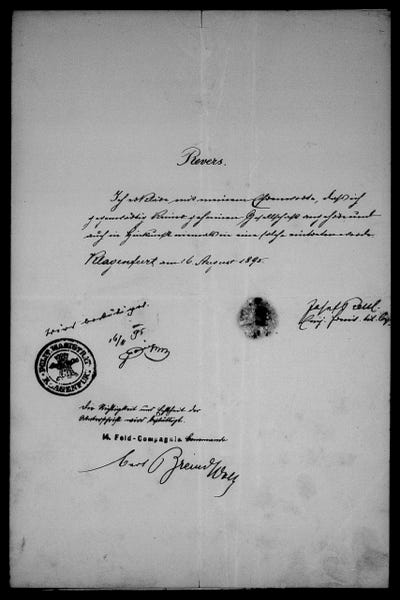 Revers.
Ich erkläre mit meinem Ehrenworte, daß ich
gegenwärtig keiner geheimen Gesellschaft angehöre und
auch in Zukunft niemals in eine solche eintreten werde.
Klagenfurt am 16. August 1895
Josef
wird bestätigt.
16/8 95
STADT MAGISTRAT
KLAGENFURT
Die Richtigkeit und Echtheit der
Unterschrift wird bestätigt.
M. Feld-Compagnie Commando